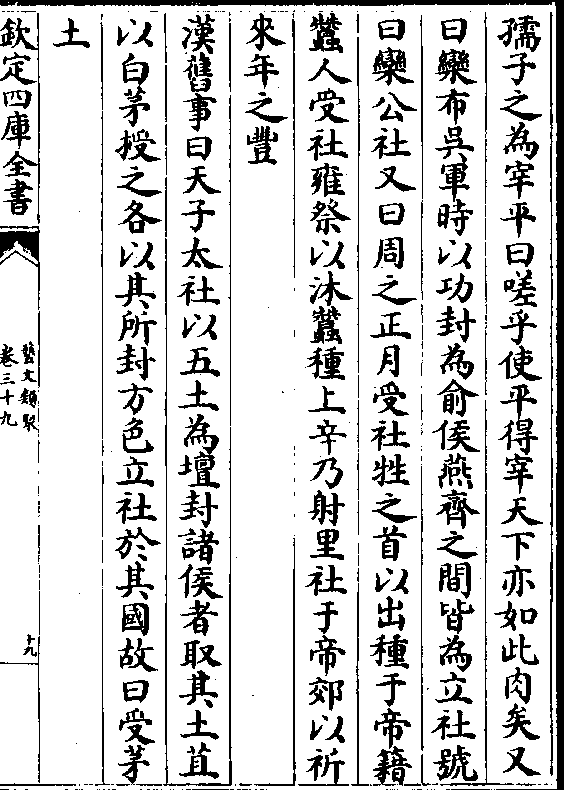 孺子之為宰平曰嗟乎使平得宰天下亦如此肉矣又
曰欒布吳軍時以功封為俞侯燕齊之間皆為立社號
曰欒公社又曰周之正月受社牲之首以出種于帝籍
蠶人受社雍祭以沐蠶種上辛乃射里社于帝郊以祈
來年之豐
漢舊事曰天子太社以五土為壇封諸侯者取其土苴
以白茅授之各以其所封方色立社於其國故曰受茅
土
欽定四庫全書
藝文類聚
卷三十九
十九